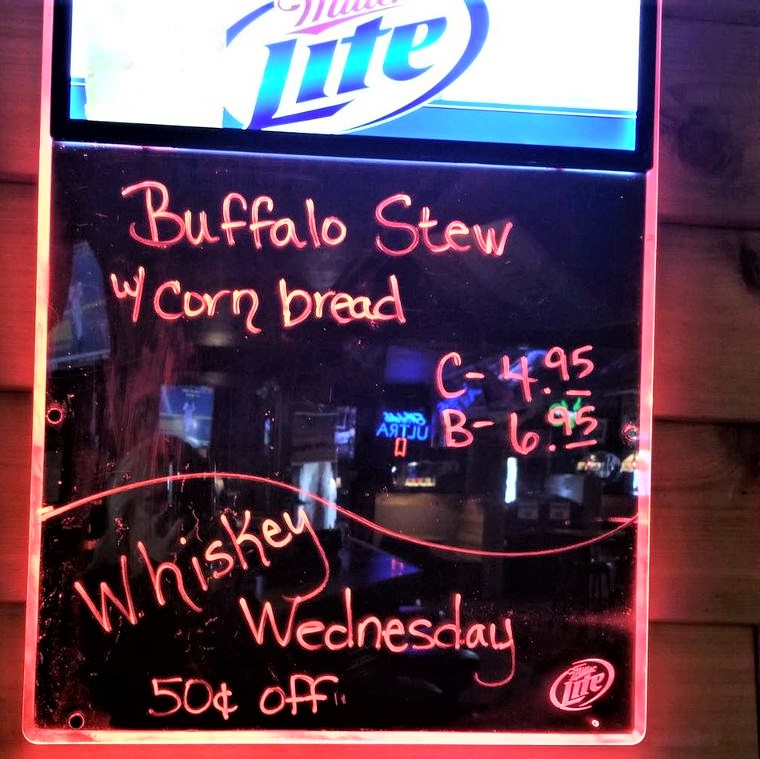 Miller
Lite
Buffalo Stew
w/ corn bread
C- 4.95
B- 6.95
ULTRA
Whiskey
Wednesday
50¢ off
Miller
Lite